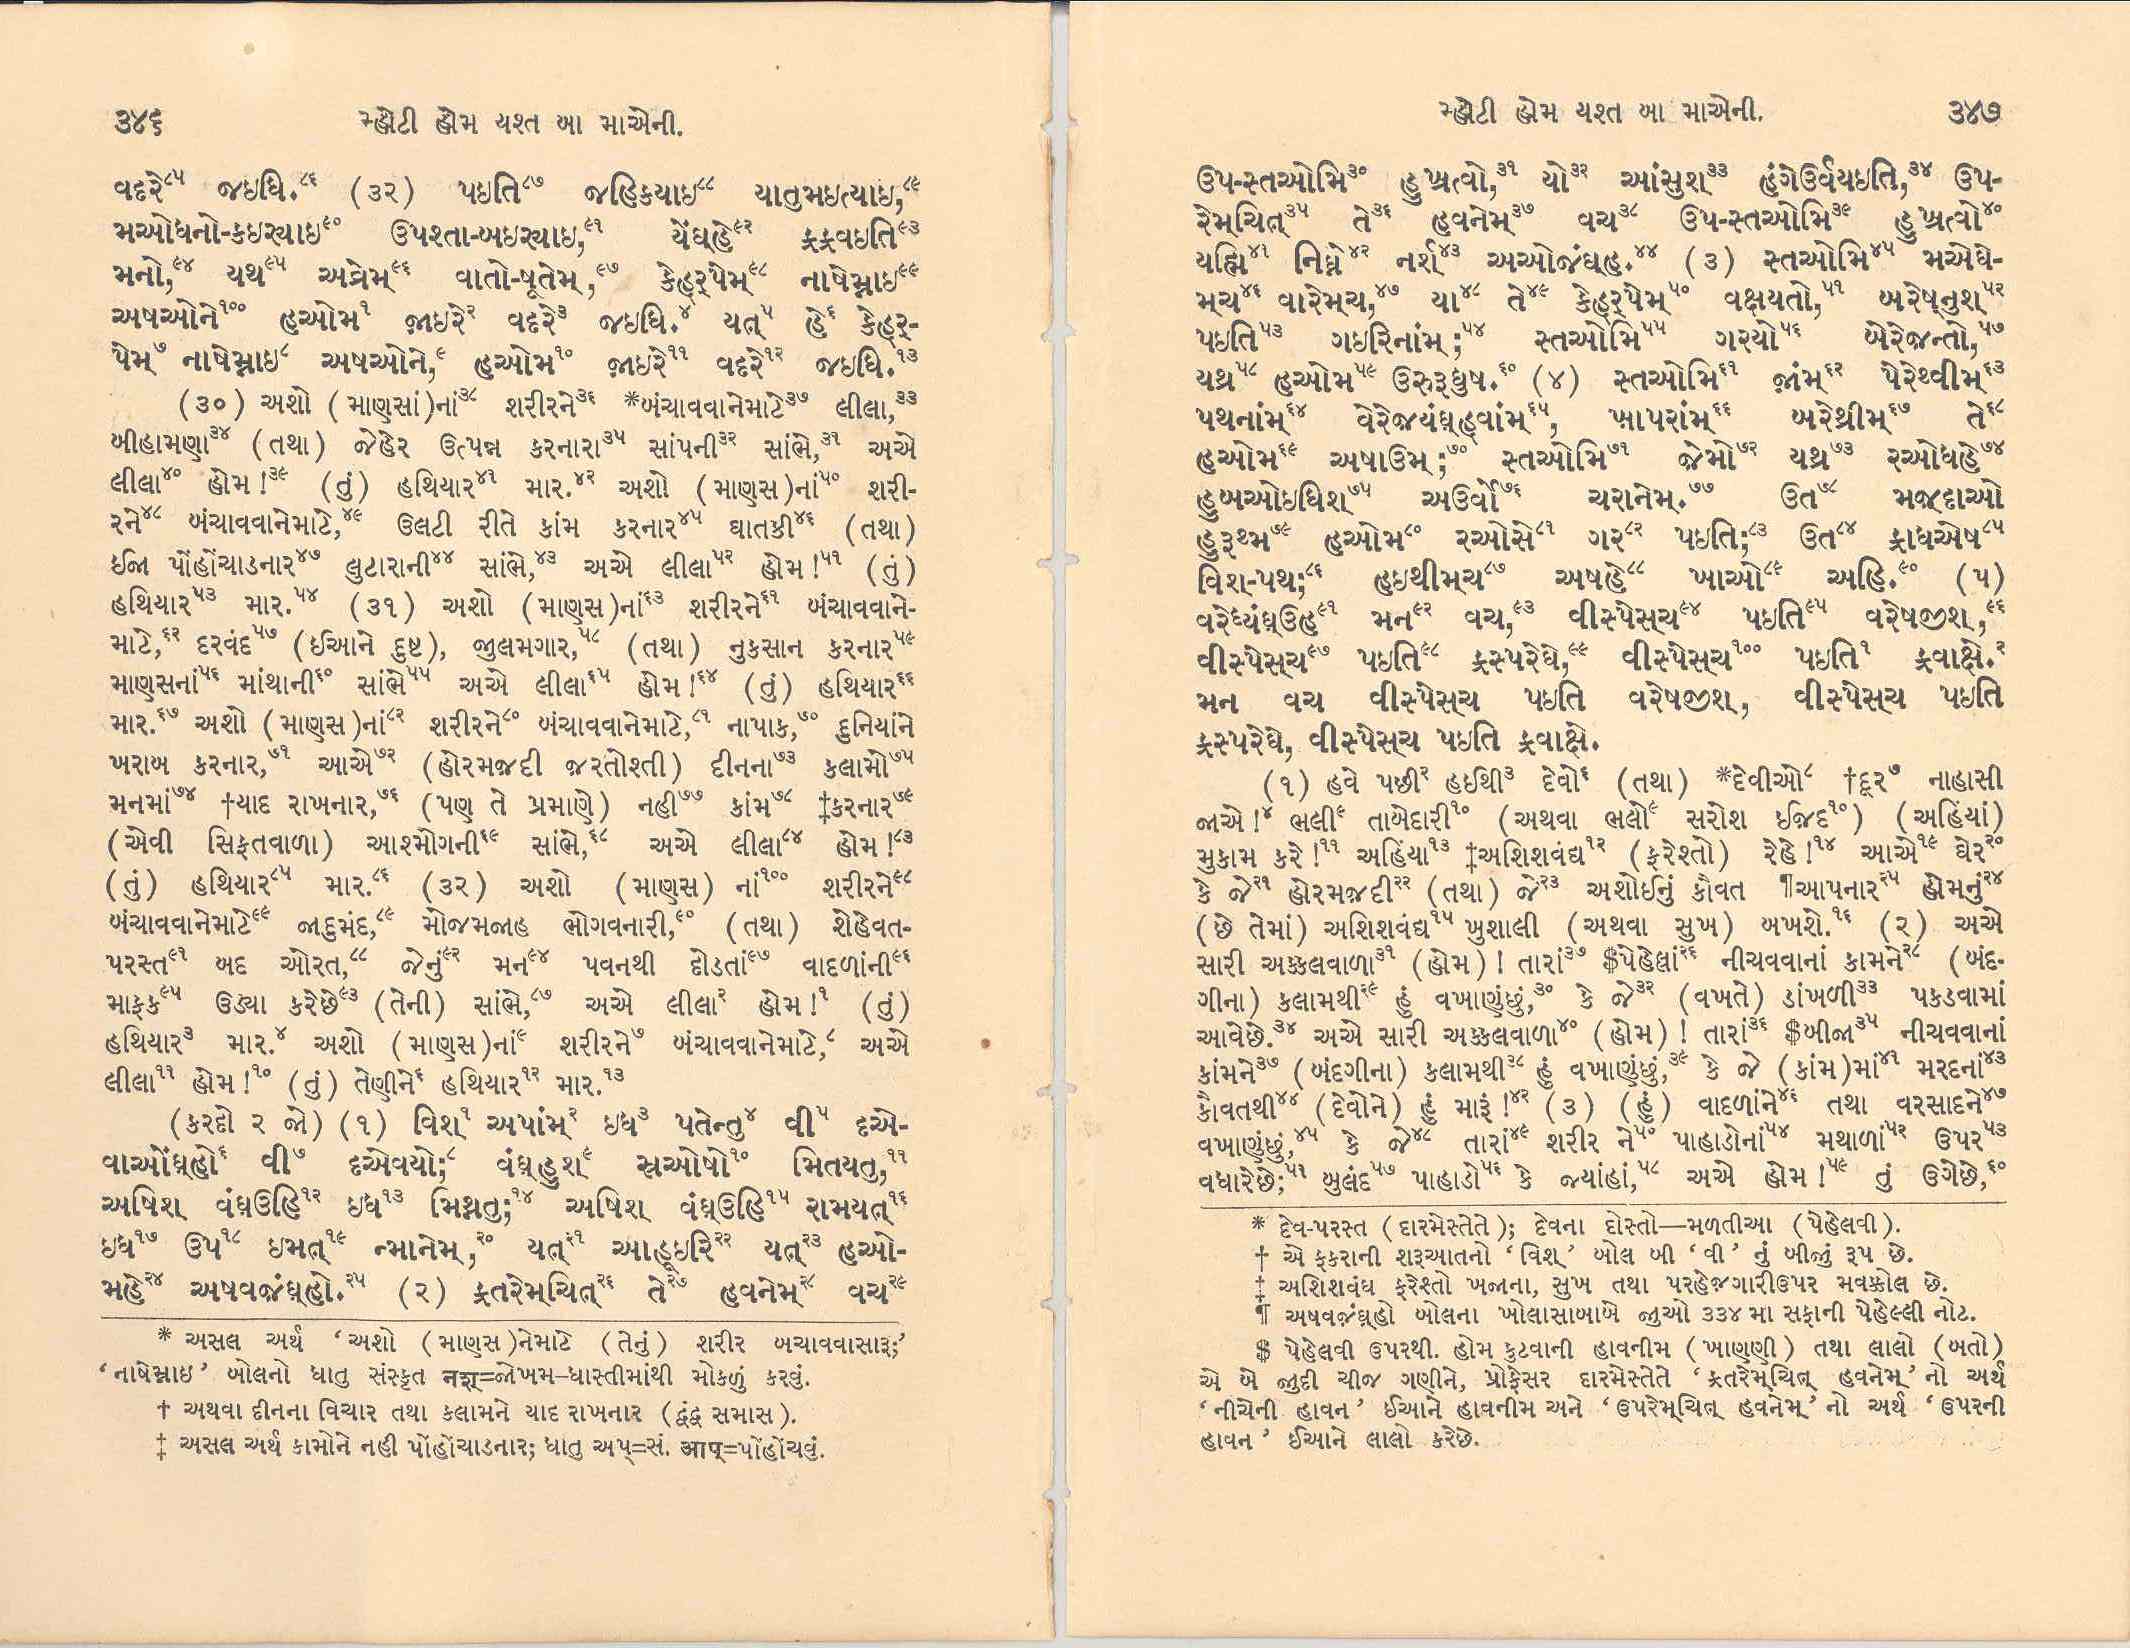 ૩૪૬ મ્હોટી હોમ યશ્ત બા માએની.
વદરે૮૫ જઇધિ.૮૬ (૩૨) પઇતિ૮૭ જહિકયાઇ૮૮ યાતુમઇત્યાઇ,૮૯
મઓધનો-કઇર્‍યાઇ૯૦ ઉપશ્તા-બઇર્‍યાઇ,૯૧ યેંઘ્હે૯૨ ફ્રફ્રવઇતિ૯૩
મનો,૯૪ યથ૯૫ અવ્રેમ્૯૬ વાતો-ષૂતેમ્,૯૭ કેહર્‌પેમ્૯૮ નાષેમ્નાઇ૯૯
અષઓને૧૦૦ હઓમ૧ જ઼ાઇરે૨ વદરે૩ જઇધિ.૪ યત્૫ હે૬ કેહર્-
પેમ્૭ નાષેમ્નાઇ૮ અષઓને,૯ હઓમ૧૦ જ઼ાઇરે૧૧ વદરે૧૨ જઇધિ.૧૩
(૩૦) અશો (માણસાં)નાં૩૮ શરીરને૩૬ *બંચાવવાનેમાટે૩૭ લીલા,૩૩
બીહામણા૩૪ (તથા) જેહેર ઉત્પન્ન કરનારા૩૫ સાંપની૩૨ સાંભે,૩૧ અએ
લીલા૪૦ હોમ!૩૯ (તું) હથિયાર૪૧ માર.૪૨ અશો (માણસ)નાં૫૦ શરી-
રને૪૮ બંચાવવાનેમાટે,૪૯ ઉલટી રીતે કાંમ કરનાર૪૫ ઘાતકી૪૬ (તથા)
ઇજા પોંહોંચાડનાર૪૭ લુટારાની૪૪ સાંભે,૪૩ અએ લીલા૫૨ હોમ!૫૧ (તું)
હથિયાર૫૩ માર.૫૪ (૩૧) અશો (માણસ)નાં૬૩ શરીરને૬૧ બંચાવવાને-
માટે,૬૨ દરવંદ૫૭ (ઈઆને દુષ્ટ), જુલમગાર,૫૮ (તથા) નુકસાન કરનાર૫૯
માણસનાં૫૬ માંથાની૬૦ સાંભે૫૫ અએ લીલા૬૫ હોમ!૬૪ (તું) હથિયાર૬૬
માર.૬૭ અશો (માણસ)નાં૮૨ શરીરને૮૦ બંચાવવાનેમાટે,૮૧ નાપાક,૭૦ દુનિયાંને
ખરાબ કરનાર,૭૧ આએ૭૨ (હોરમજ઼દી જ઼રતોશ્તી) દીનના૭૩ કલામો૭૫
મનમાં૭૪ †યાદ રાખનાર,૭૬ (પણ તે પ્રમાણે) નહી૭૭ કાંમ૭૮ ‡કરનાર૭૯
(એવી સિફતવાળા) આશ્મૉગની૬૯ સાંભે,૬૮ અએ લીલા૮૪ હોમ!૮૩
(તું) હથિયાર૮૫ માર.૮૬ (૩૨) અશો (માણસ) નાં૧૦૦ શરીરને૯૮
બંચાવવાનેમાટે૯૯ જાદુમંદ,૮૯ મોજમજાહ ભોગવનારી,૯૦ (તથા) શેહેવત-
પરસ્ત૯૧ બદ ઑરત,૮૮ જેનું૯૨ મન૯૪ પવનથી દોડતાં૯૭ વાદળાંની૯૬
માફક૯૫ ઉડ્યા કરેછે૯૩ (તેની) સાંભે,૮૭ અએ લીલા૨ હોમ!૧ (તું)
હથિયાર૩ માર.૪ અશો (માણસ)નાં૯ શરીરને૭ બંચાવવાનેમાટે,૮ અએ
લીલા૧૧ હોમ!૧૦ (તું) તેણીને૬ હથિયાર૧૨ માર.૧૩
(કરદો ૨ જો) (૧) વિશ્૧ અપાંમ્૨ ઇધ૩ પતેન્તુ૪ વી૫ દએ-
વાઓંઘ્હો૬ વી૭ દએવયો;૮ વંઘ્હુશ૯ સ્રઓષો૧૦ મિતયતુ,૧૧
અષિશ વંઘ્ઉહિ૧૨ ઇધ૧૩ મિથ્નતુ;૧૪ અષિશ્ વંઘ્ઉહિ૧૫ રામયત્૧૬
ઇધ૧૭ ઉપ૧૮ ઇમત્૧૯ ન્માનેમ્,૨૦ યત્૨૧ આહૂઇરિ૨૨ યત્૨૩ હઓ-
મહે૨૪ અષવજ઼ંઘ્હો.૨૫ (૨) ફ્રતરેમ્‌ચિત્૨૬ તે૨૭ હવનેમ્૨૮ વચ૨૯
* અસલ અર્થ ‘અશો (માણસ)નેમાટે (તેનું) શરીર બચાવવાસારૂ;’
‘નાષેમ્નાઇ’ બોલનો ધાતુ સંસ્કૃત नश्=જોખમ-ધાસ્તીમાંથી મોકળું કરવું.
† અથવા દીનના વિચાર તથા કલામને યાદ રાખનાર (દ્વંદ્વ સમાસ).
‡ અસલ અર્થ કામોને નહી પોંહોંચાડનાર; ધાતુ અપ્=સં. आप्=પોંહોંચવું.
મ્હોટી હોમ યશ્ત બા માએની. ૩૪૭
ઉપ-સ્તઓમિ૩૦ હુખ્રત્વો,૩૧ યો૩૨ આંસુશ્૩૩ હંગેઉર્વયઇતિ,૩૪ ઉપ-
રેમ્‌ચિત્૩૫ તે૩૬ હવનેમ્૩૭ વચ૩૮ ઉપ-સ્તઓમિ૩૯ હુખ્રત્વો૪૦
યહ્મિ૪૧ નિઘ્ને૪૨ નર્શ્૪૩ અઓજંઘહ.૪૪ (૩) સ્તઓમિ૪૫ મએઘે-
મ્‌ચ૪૬ વારેમ્‌ચ,૪૭ યા૪૮ તે૪૯ કેહર્‌પેમ્૫૦ વક્ષયતો,૫૧ બરેષ્‌નુશ૫૨
પઇતિ૫૩ ગઇરિનાંમ્;૫૪ સ્તઓમિ૫૫ ગરયો૫૬ બેરેજ઼ન્તો,૫૭
યથ્ર૫૮ હઓમ૫૯ ઉરુરૂધુષ.૬૦ (૪) સ્તઓમિ૬૧ જ઼ાંમ્૬૨ પેરેથ્વીમ્૬૩
પથનાંમ્૬૪ વેરેજ઼યંઘ્હ્વાંમ્૬૫, ખ઼ાપરાંમ્૬૬ બરેથ્રીમ્૬૭ તે૬૮
હઓમ૬૯ અષાઉમ્;૭૦ સ્તઓમિ૭૧ જ઼ેમો૭૨ યથ્ર૭૩ રઓધહે૭૪
હુબઓઇધિશ્૭૫ અઉર્વો૭૬ ચરાનેમ્.૭૭ ઉત૭૮ મજ઼્દાઓ
હુરૂથ્મ૭૯ હઓમ૮૦ રઓસે૮૧ ગર૮૨ પઇતિ;૮૩ ઉત૮૪ ફ્રાધએષ૮૫
વિશ-પથ;૮૬ હઇથીમ્‌ચ૮૭ અષહે૮૮ ખાઓ૮૯ અહિ.૯૦ (૫)
વરેધ્યંઘ્ઉહ૯૧ મન૯૨ વચ,૯૩ વીસ્પેસ્‌ચ૯૪ પઇતિ૯૫ વરેષજીશ્,૯૬
વીસ્પેસ્‌ચ૯૭ પઇતિ૯૮ ફ્રસ્પરેઘે,૯૯ વીસ્પેસ્‌ચ૧૦૦ પઇતિ૧ ફ્રવાક્ષે.૨
મન વચ વીસ્પેસ્‌ચ પઇતિ વરેષજીશ્, વીસ્પેસ્‌ચ પઇતિ
ફ્રસ્પરેઘે, વીસ્પેસ્‌ચ પઇતિ ફ્રવાક્ષે.
(૧) હવે પછી૨ હઇથી૩ દેવો૬ (તથા) *દેવીઓ૮ †દૂર૭ નાહાસી
જાએ!૪ ભલી૯ તાબેદારી૧૦ (અથવા ભલો૯ સરોશ ઈજ઼દ૧૦) (અહિંયાં)
મુકામ કરે!૧૧ અહિંયા૧૩ ‡અશિશવંઘ૧૨ (ફરેશ્તો) રેહે!૧૪ આએ૧૯ ઘેર૨૦
કે જે૨૧ હોરમજ઼દી૨૨ (તથા) જે૨૩ અશોઈનું કૌવત ¶આપનાર૨૫ હોમનું૨૪
(છે તેમાં) અશિશવંઘ૧૫ ખુશાલી (અથવા સુખ) બખશે.૧૬ (૨) અએ
સારી અક્કલવાળા૩૧ (હોમ)! તારાં૨૭ $પેહેલાં૨૬ નીચવવાનાં કામને૨૮ (બંદ-
ગીના) કલામથી૨૯ હું વખાણુંછું,૩૦ કે જે૩૨ (વખતે) ડાંખળી૩૩ પકડવામાં
આવેછે.૩૪ અએ સારી અક્કલવાળા૪૦ (હોમ)! તારાં૩૬ $બીજા૩૫ નીચવવાનાં
કાંમને૩૭ (બંદગીના) કલામથી૩૮ હું વખાણુંછું,૩૯ કે જે (કાંમ)માં૪૧ મરદનાં૪૩
કૌવતથી૪૪ (દેવોને) હું મારૂં!૪૨ (૩) (હું) વાદળાંને૪૬ તથા વરસાદને૪૭
વખાણુંછું,૪૫ કે જે૪૮ તારાં૪૯ શરીર ને૫૦ પાહાડોનાં૫૪ મથાળાં૫૨ ઉપર૫૩
વધારેછે;૫૧ બુલંદ૫૭ પાહાડો૫૬ કે જ્યાંહાં,૫૮ અએ હોમ!૫૯ તું ઉગેછે,૬૦
* દેવ-પરસ્ત (દારમેસ્તેતે); દેવના દોસ્તો—મળતીઆ (પેહેલવી).
† એ ફકરાની શરૂઆતનો ‘વિશ્’ બોલ બી ‘વી’ નું બીજું રૂપ છે.
‡ અશિશવંઘ ફરેશ્તો ખજાના, સુખ તથા પરહેજ઼ગારીઉપર મવક્કલ છે.
¶ અષવજ઼ંઘ્હો બોલના ખોલાસાબાબે જુઓ ૩૩૪ મા સફાની પેહેલ્લી નોટ.
$ પેહેલવી ઉપરથી. હોમ કુટવાની હાવનીમ (ખાણણી) તથા લાલો (બતો)
એ બે જુદી ચીજ ગણીને, પ્રોફેસર દારમેસ્તેતે ‘ફ્રતરેમ્‌ચિત્ હવનેમ્’નો અર્થ
‘નીચેની હાવન’ ઈઆને હાવનીમ અને ‘ઉપરેમ્‌ચિત્ હવનેમ્’નો અર્થ ‘ઉપરની
હાવન’ ઈઆને લાલો કરેછે.